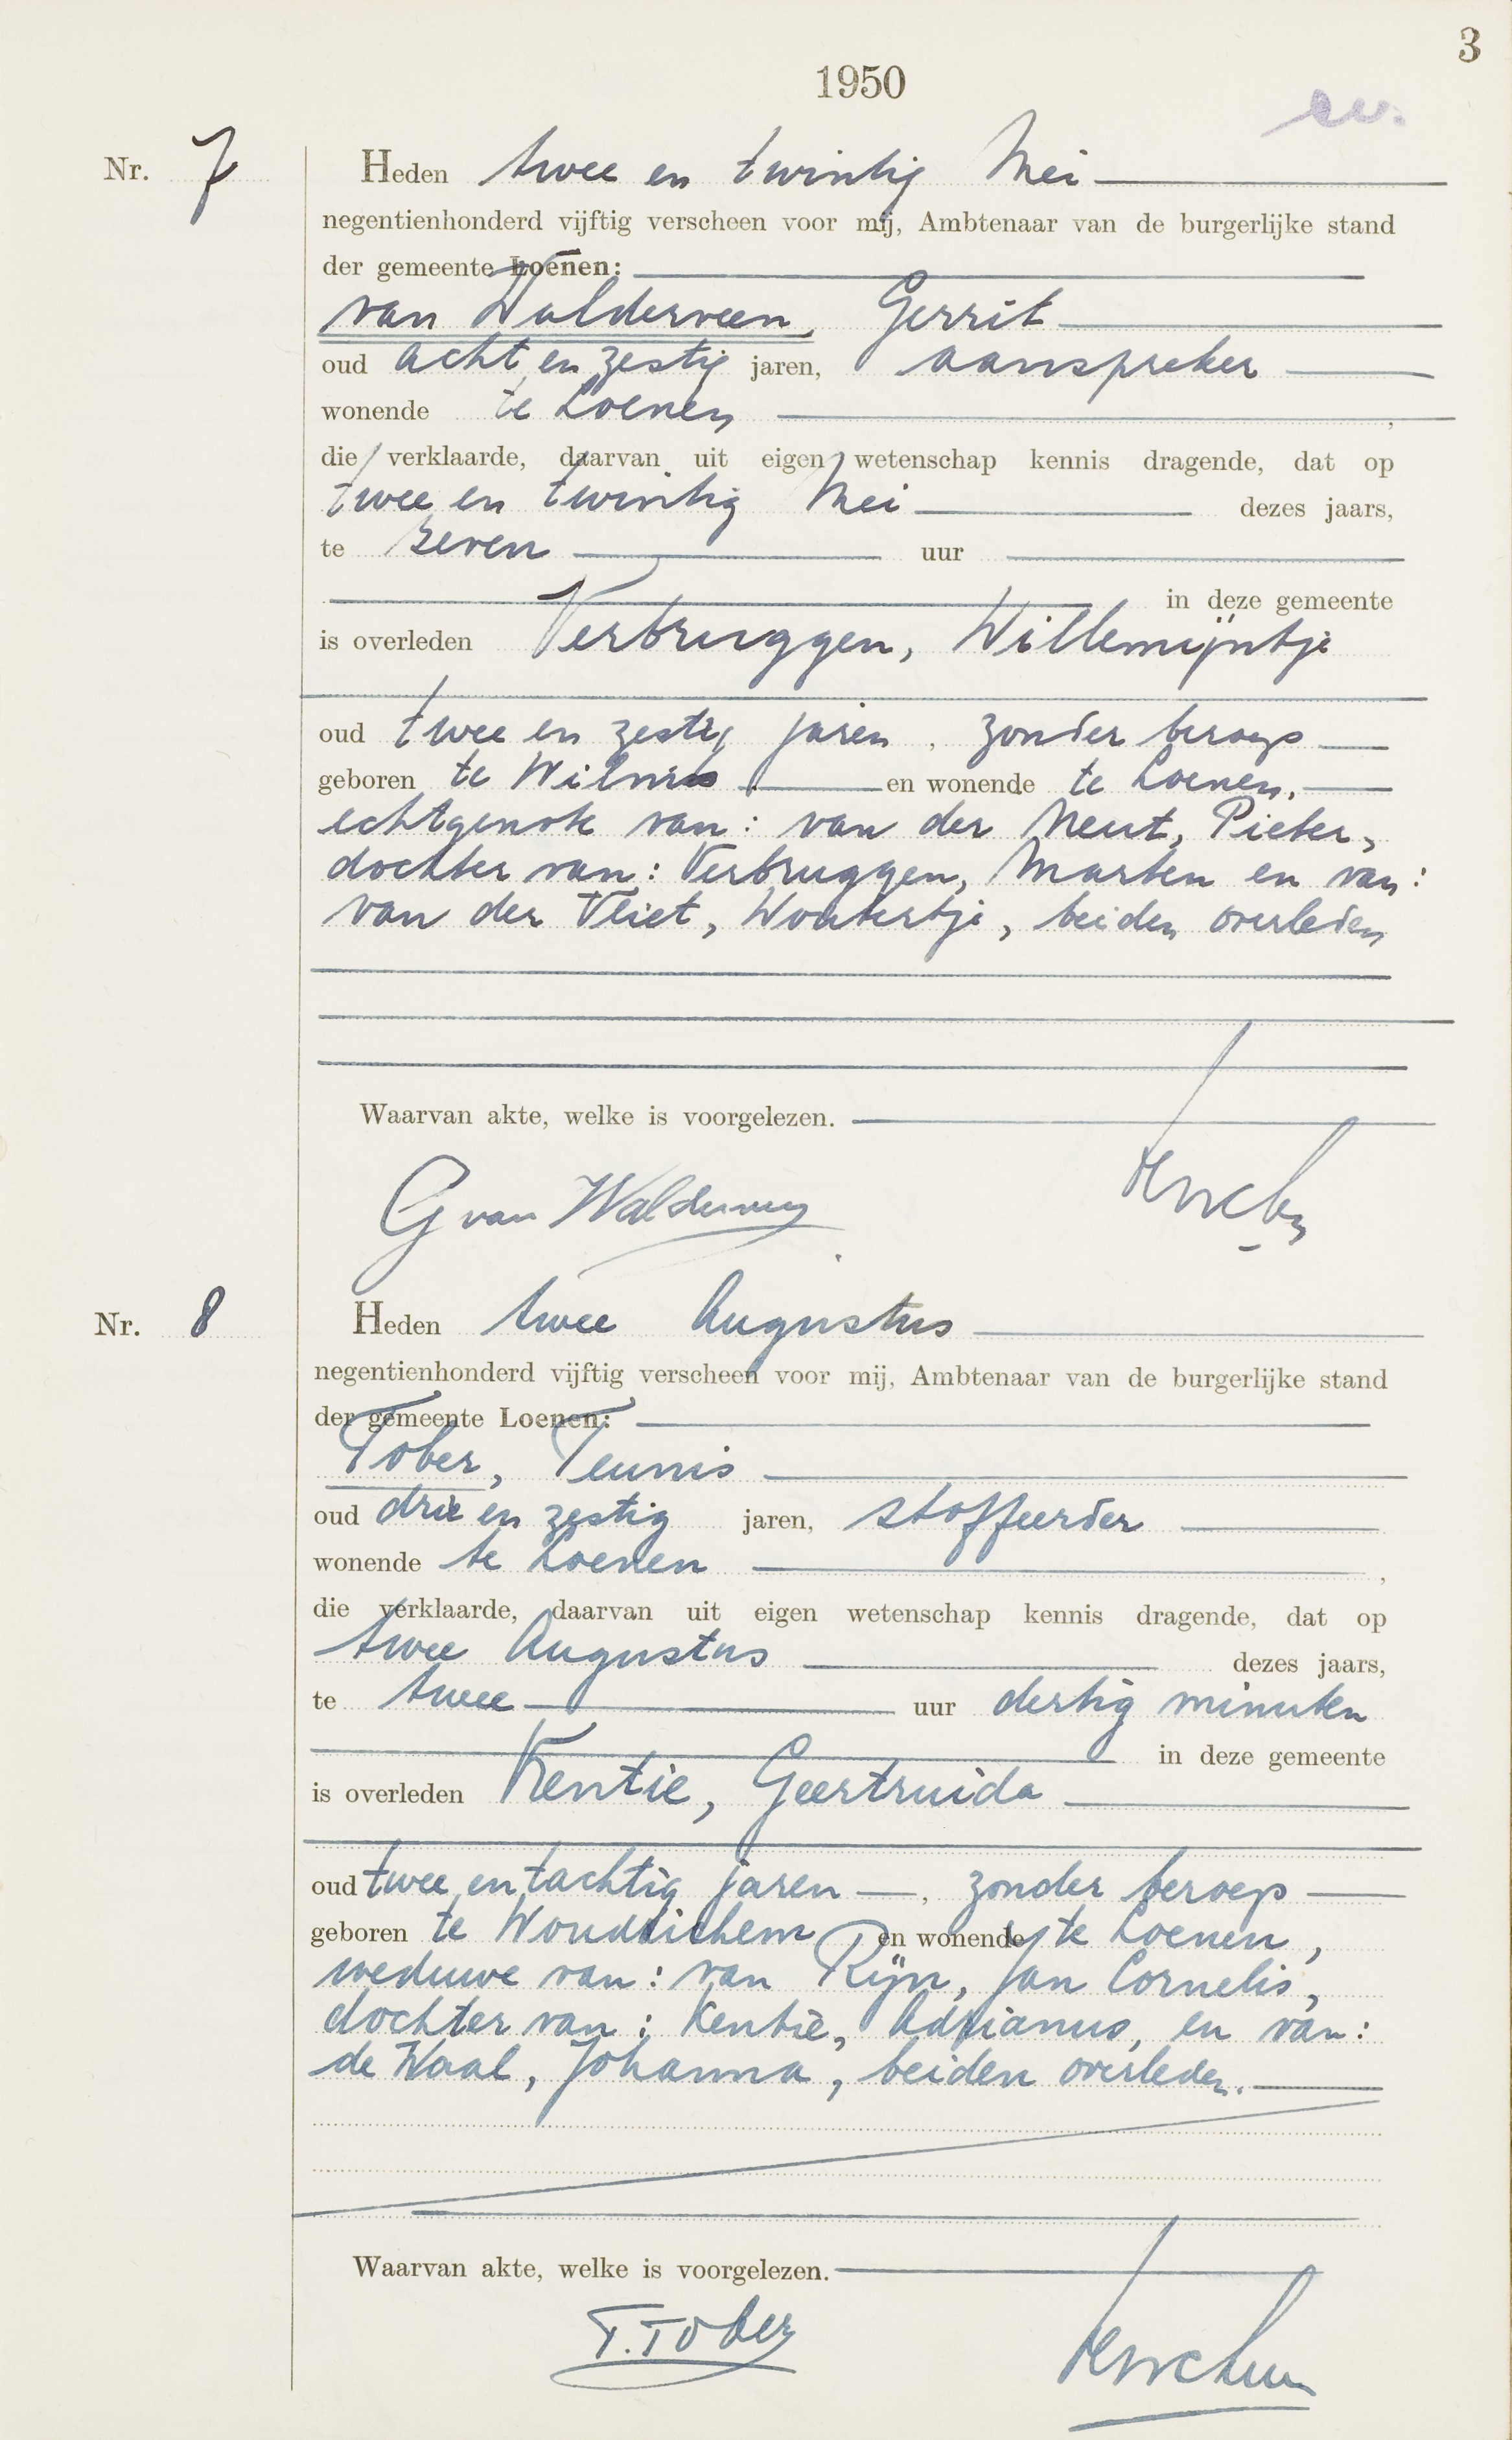 3
1950
Nr. 7
Heden twee en twintig Mei
negentienhonderd vijftig verscheen voor mij, Ambtenaar van de burgerlijke stand
der gemeente Loenen:
van Walderveen, Gerrit
oud acht en zestig jaren, aanspreker
wonende te Loenen ,
die verklaarde, daarvan uit eigen wetenschap kennis dragende, dat op
twee en twintig Mei dezes jaars,
te zeven uur
in deze gemeente
is overleden Verbruggen, Willemijntje
oud twee en zestig jaren, zonder beroep
geboren te Wilnis en wonende te Loenen,
echtgenote van: van der Neut, Pieter,
dochter van: Verbruggen, Marten en van:
van der Vliet, Woutertje, beiden overleden
Waarvan akte, welke is voorgelezen.
G van Walderveen
Nr. 8
Heden twee Augustus
negentienhonderd vijftig verscheen voor mij, Ambtenaar van de burgerlijke stand
der gemeente Loenen:
Tober, Teunis
oud drie en zestig jaren, stoffeerder
wonende te Loenen ,
die verklaarde, daarvan uit eigen wetenschap kennis dragende, dat op
twee Augustus dezes jaars,
te twee uur dertig minuten
in deze gemeente
is overleden Kentie, Geertruida
oud twee en tachtig jaren, zonder beroep
geboren te Woudrichem en wonende te Loenen,
weduwe van: van Rijn, Jan Cornelis,
dochter van: Kentie, Adrianus, en van:
de Waal, Johanna, beiden overleden.
Waarvan akte, welke is voorgelezen.
T. Tober